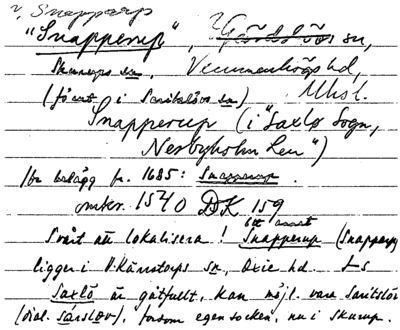 ? Snapparp
"Snapperup", ? Gärdslövs sn,
Skurups sn, Vemmenhögs hd,
(förut i Saritslövs sn) Mhsl.
Snapperup (i "Saxlø Sogn,
Nesbyholm Len")
för belägg fr. 1685: Snapperup.
omkr. 1540 DK 159
ett annat
Svårt att lokalisera! Snapperup (Snapparp)
ligger i V. Kärrstorps sn, Oxie hd. Ls
Saxlö är gåtfullt, kan möjl. vara Saritslöv
(dial. Särslöv), forsom egen socken, nu i Skurup.